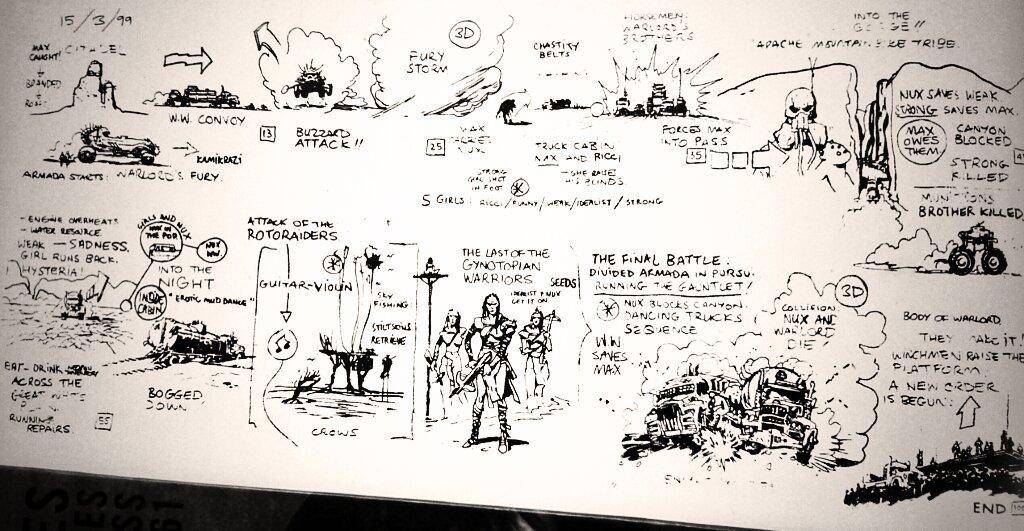 15/3/99
MAX CAUGHT!
CITADEL
BRANDED
W.W. CONVOY
KAMIKRAZI
ARMADA STARTS: WARLORD'S FURY.
13 BUZZARD
ATTACK!!
3D
FURY
STORM
25
MAX
CHASTITY
BELTS
TRUCK CABIN
MAX AND RICCI
SHE RAISE
HIS BLINDS
STRONG
GIRL SHOT
IN FOOT
5 GIRLS: RICCI/FUNNY/WEAK/IDEALIST/STRONG
HORSEMEN:
WARLORD'S
BROTHERS
FORCES MAX
INTO PASS
35
INTO THE
GORGE!!
APACHE MOUNTAIN BIKE TRIBE.
NUX SAVES WEAK
STRONG SAVES MAX.
MAX
OWES
THEM
CANYON
BLOCKED
STRONG
KILLED
MUNITIONS
BROTHER KILLED
- ENGINE OVERHEATS
- WATER RESOURCE
WEAK - SADNESS.
GIRL RUNS BACK.
HYSTERIA!
GIRLS AND NUX
MAX IN
THE POD
NUX
WW.
INTO THE
NIGHT
INSIDE
CABIN
"EROTIC MUD DANCE"
EAT- DRINK
ACROSS THE
GREAT
RUNNING
REPAIRS.
55
BOGGED
DOWN
ATTACK OF THE
ROTORAIDERS
GUITAR-VIOLIN
SKY
FISHING
STILTSONS
RETRIEVE
CROWS
THE LAST OF THE
GYNOTOPIAN
WARRIORS
SEEDS
IDEALIST & NUX
GET IT ON
THE FINAL BATTLE:
DIVIDED ARMADA IN PURSU
RUNNING THE GAUNTLET!
NUX BLOCKS CANYON
DANCING TRUCKS
SEQUENCE
WW
SAVES
MAX
3D
COLLISION:
NUX AND
WARLORD
DIE
BODY OF WARLORD.
THEY MAKE IT!
WINCHMEN RAISE THE
PLATFORM.
A NEW ORDER
IS BEGUN.
END